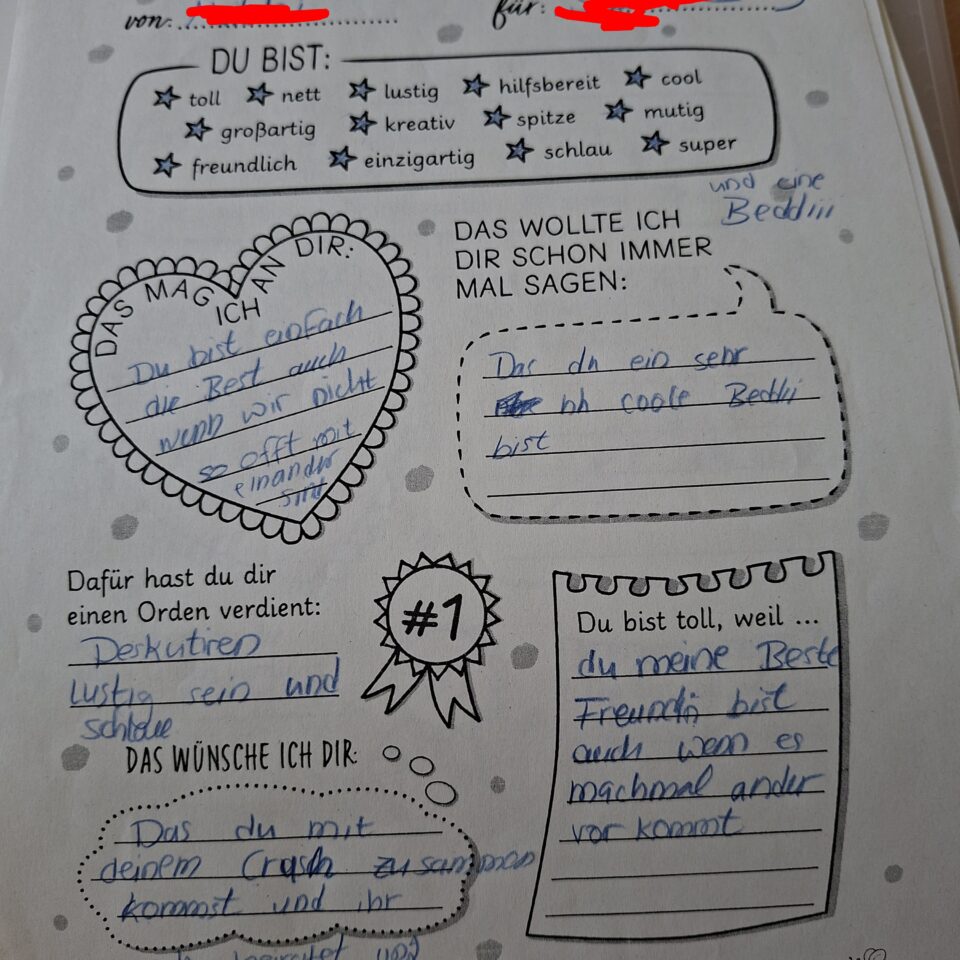 von:
für:
DU BIST:
toll nett lustig hilfsbereit cool
großartig kreativ spitze mutig
freundlich einzigartig schlau super
und eine
Beddiii
DAS MAG ICH AN DIR:
Du bist einfach
die Best auch
wenn wir nicht
so offt mit
einander
sint
DAS WOLLTE ICH
DIR SCHON IMMER
MAL SAGEN:
Das du ein sehr
coole Beddii
bist
Dafür hast du dir
einen Orden verdient:
Deskutiren
lustig sein und
schlaue
#1
Du bist toll, weil ...
du meine Beste
Freundin bist
auch wenn es
machmal ander
vor kommt
DAS WÜNSCHE ICH DIR:
Das du mit
deinem Crash zusammen
kommst und ihr
und